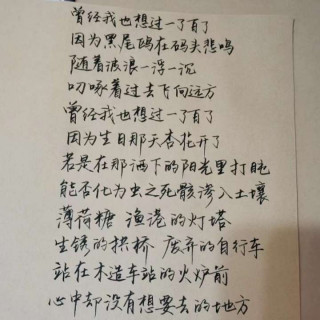 曾经我也想过一了百了
因为黑尾鸥在码头悲鸣
随着波浪一浮一沉
叨啄着过去飞向远方
曾经我也想过一了百了
因为生日那天杏花开了
若是在那洒下的阳光里打盹
能否化为虫之死骸渗入土壤
薄荷糖 渔港的灯塔
生锈的拱桥 废弃的自行车
站在木造车站的火炉前
心中却没有想要去的地方